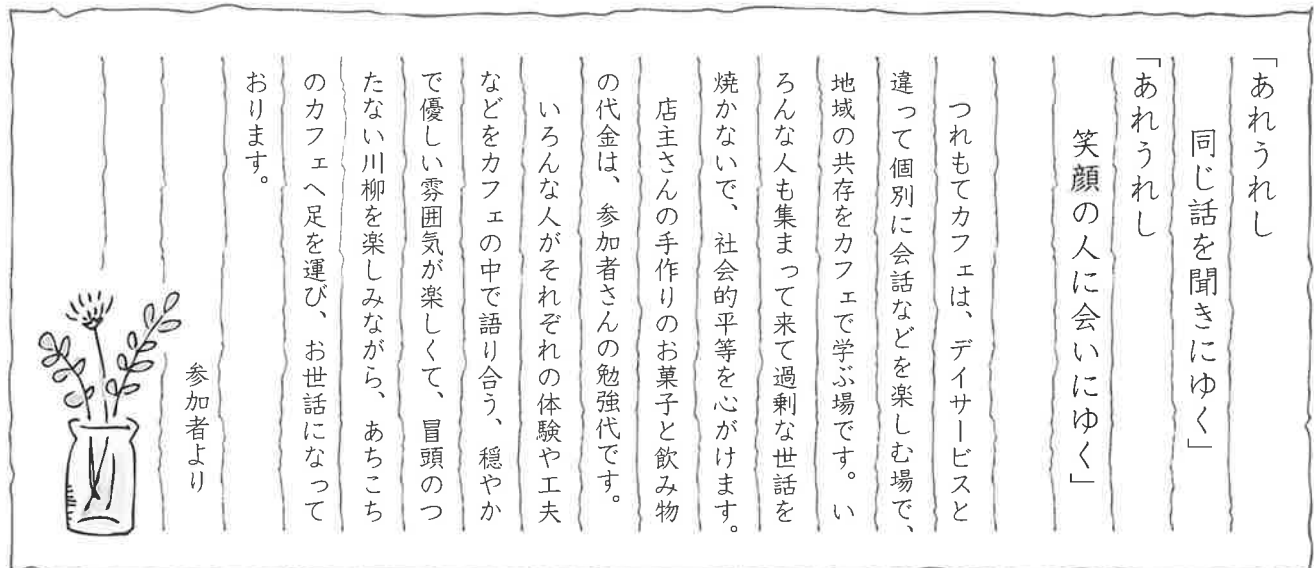 「あれうれし
同じ話を聞きにゆく」
「あれうれし
笑顔の人に会いにゆく」
つれもてカフェは、デイサービスと
違って個別に会話などを楽しむ場で、
地域の共存をカフェで学ぶ場です。い
ろんな人も集まって来て過剰な世話を
焼かないで、社会的平等を心がけます。
店主さんの手作りのお菓子と飲み物
の代金は、参加者さんの勉強代です。
いろんな人がそれぞれの体験や工夫
などをカフェの中で語り合う、穏やか
で優しい雰囲気が楽しくて、冒頭のつ
たない川柳を楽しみながら、あちこち
のカフェへ足を運び、お世話になって
おります。
参加者より